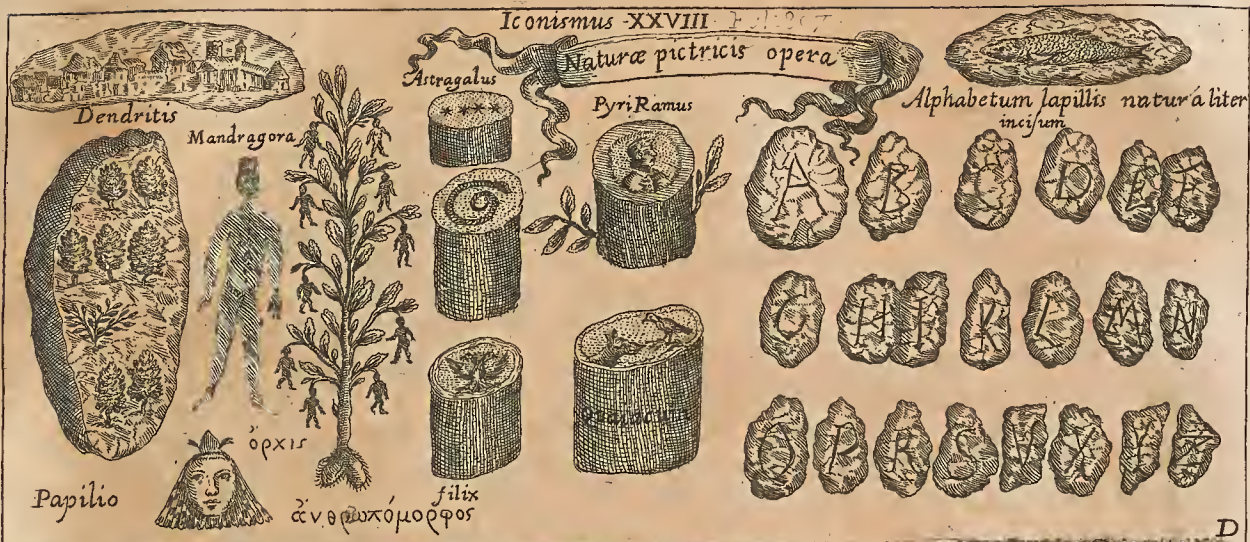 Iconismus XXVIII
Naturæ pictricis opera
Dendritis
Mandragora
Astragalus
Pyri Ramus
Alphabetum lapillis natura liter
incisum
A B C D E F
G H I K L M N
O P R S V X Y Z
ὄρχις
Papilio
ἀνθρωπόμορφος
filix
D